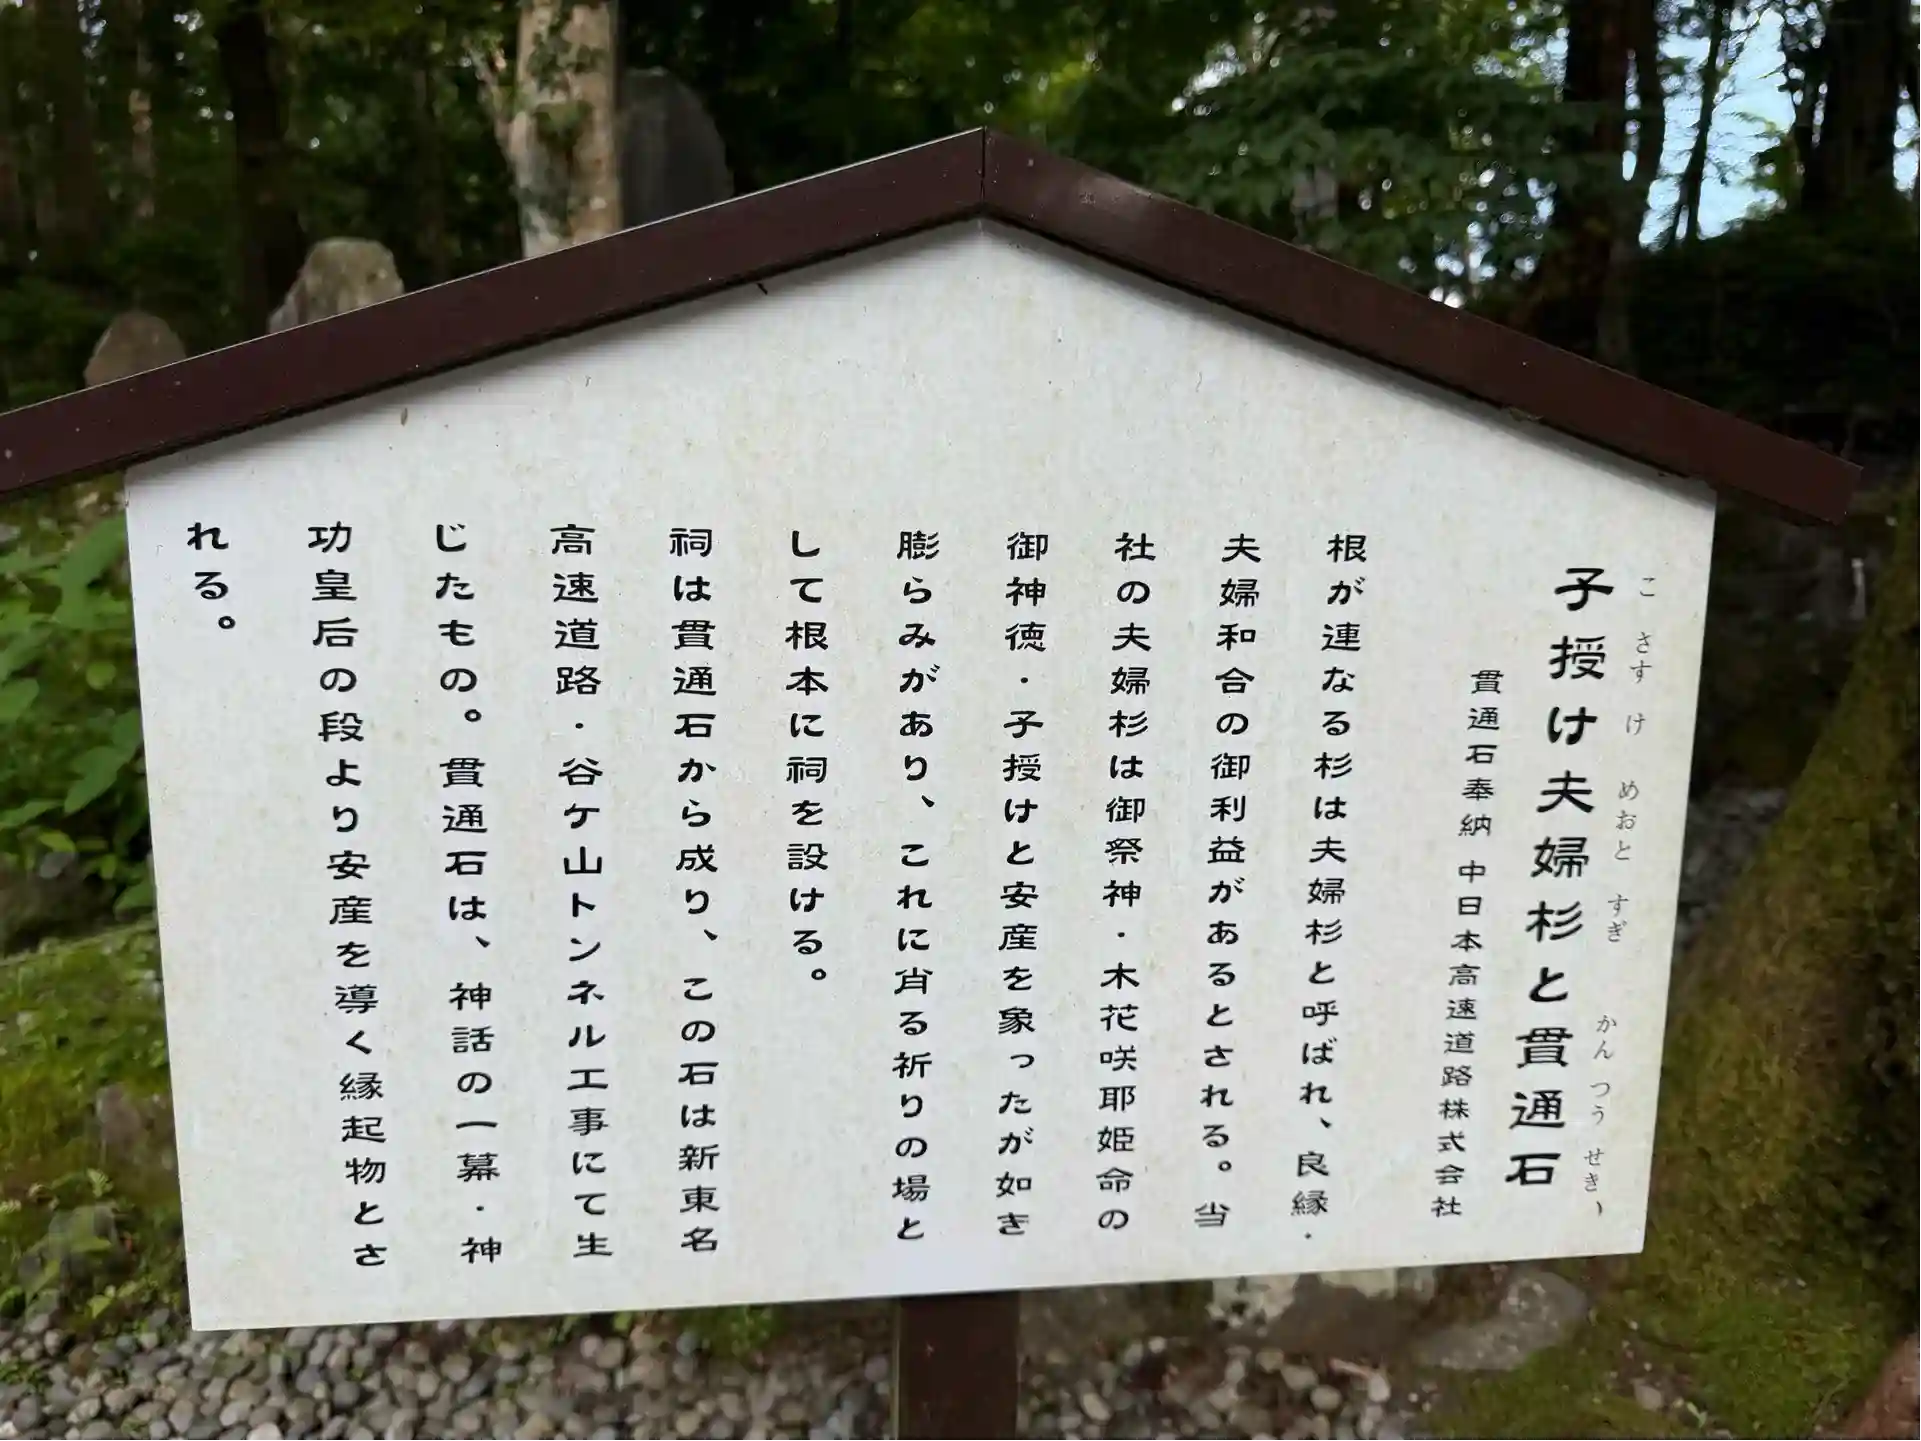 子授け夫婦杉と貫通石
こさずけめおとすぎかんつうせき
貫通石奉納 中日本高速道路株式会社
根が連なる杉は夫婦杉と呼ばれ、良縁・
夫婦和合の御利益があるとされる。当
社の夫婦杉は御祭神・木花咲耶姫命の
御神徳・子授けと安産を象ったが如き
膨らみがあり、これに肖る祈りの場と
して根本に祠を設ける。
祠は貫通石から成り、この石は新東名
高速道路・谷ケ山トンネル工事にて生
じたもの。貫通石は、神話の一幕・神
功皇后の段より安産を導く縁起物とさ
れる。